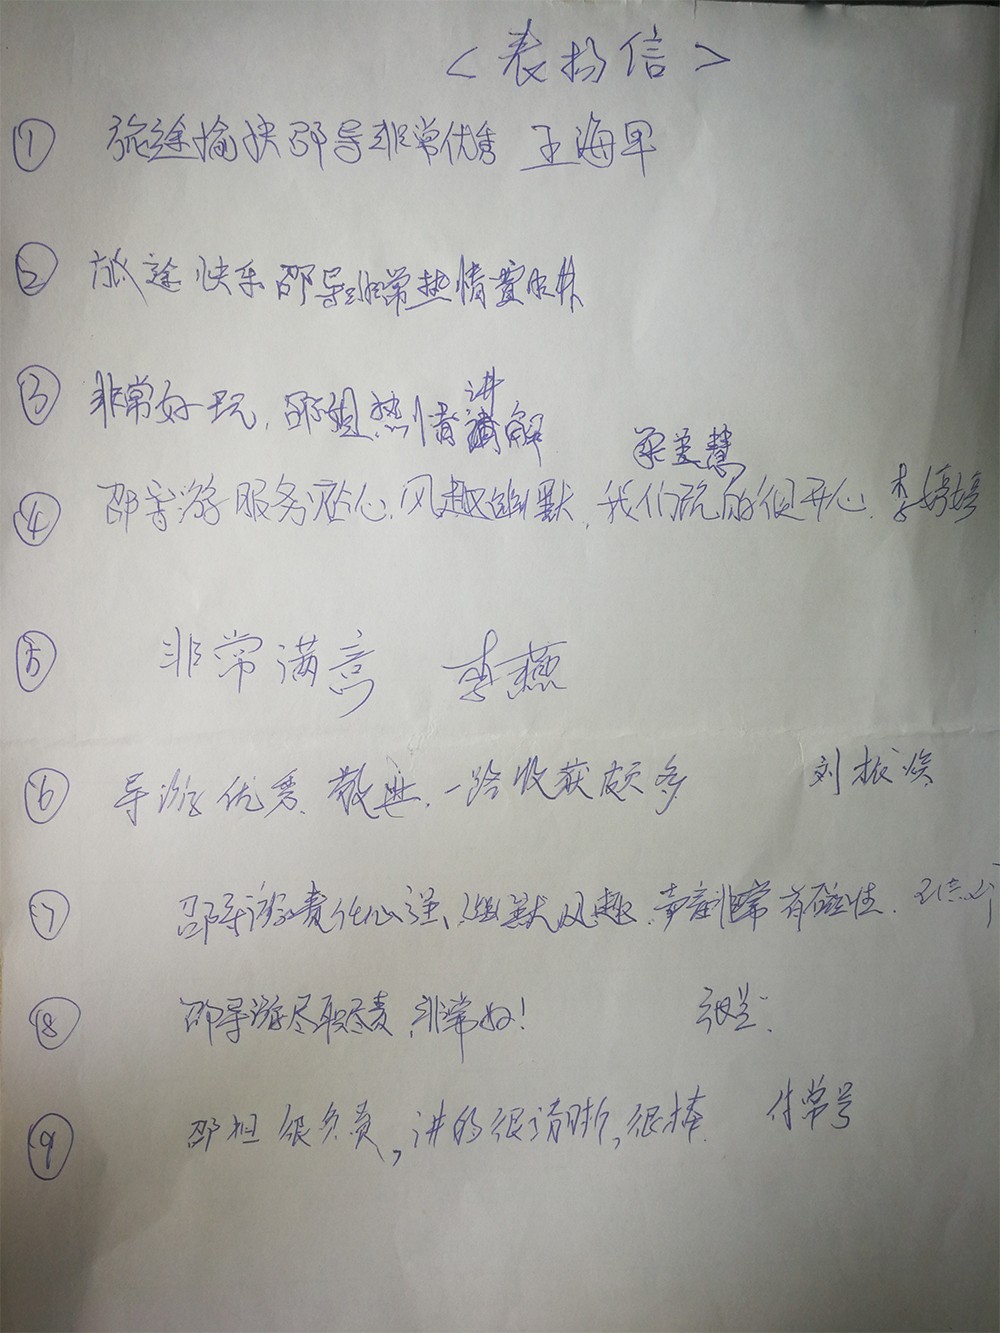 <表扬信>
① 旅途愉快邵导非常优秀 王海军
② 旅途快乐邵导非常热情
③ 非常好玩,邵姐热情讲解
梁美慧
④ 邵导游服务贴心,风趣幽默,我们玩的很开心. 李婷婷
⑤ 非常满意 李燕
⑥ 导游优秀、敬业,一路收获颇多 刘振
⑦ 邵导游责任心强、幽默风趣.声音非常有磁性.
⑧ 邵导游尽职尽责,非常好!
⑨ 邵姐很负责,讲的很清晰,很棒.